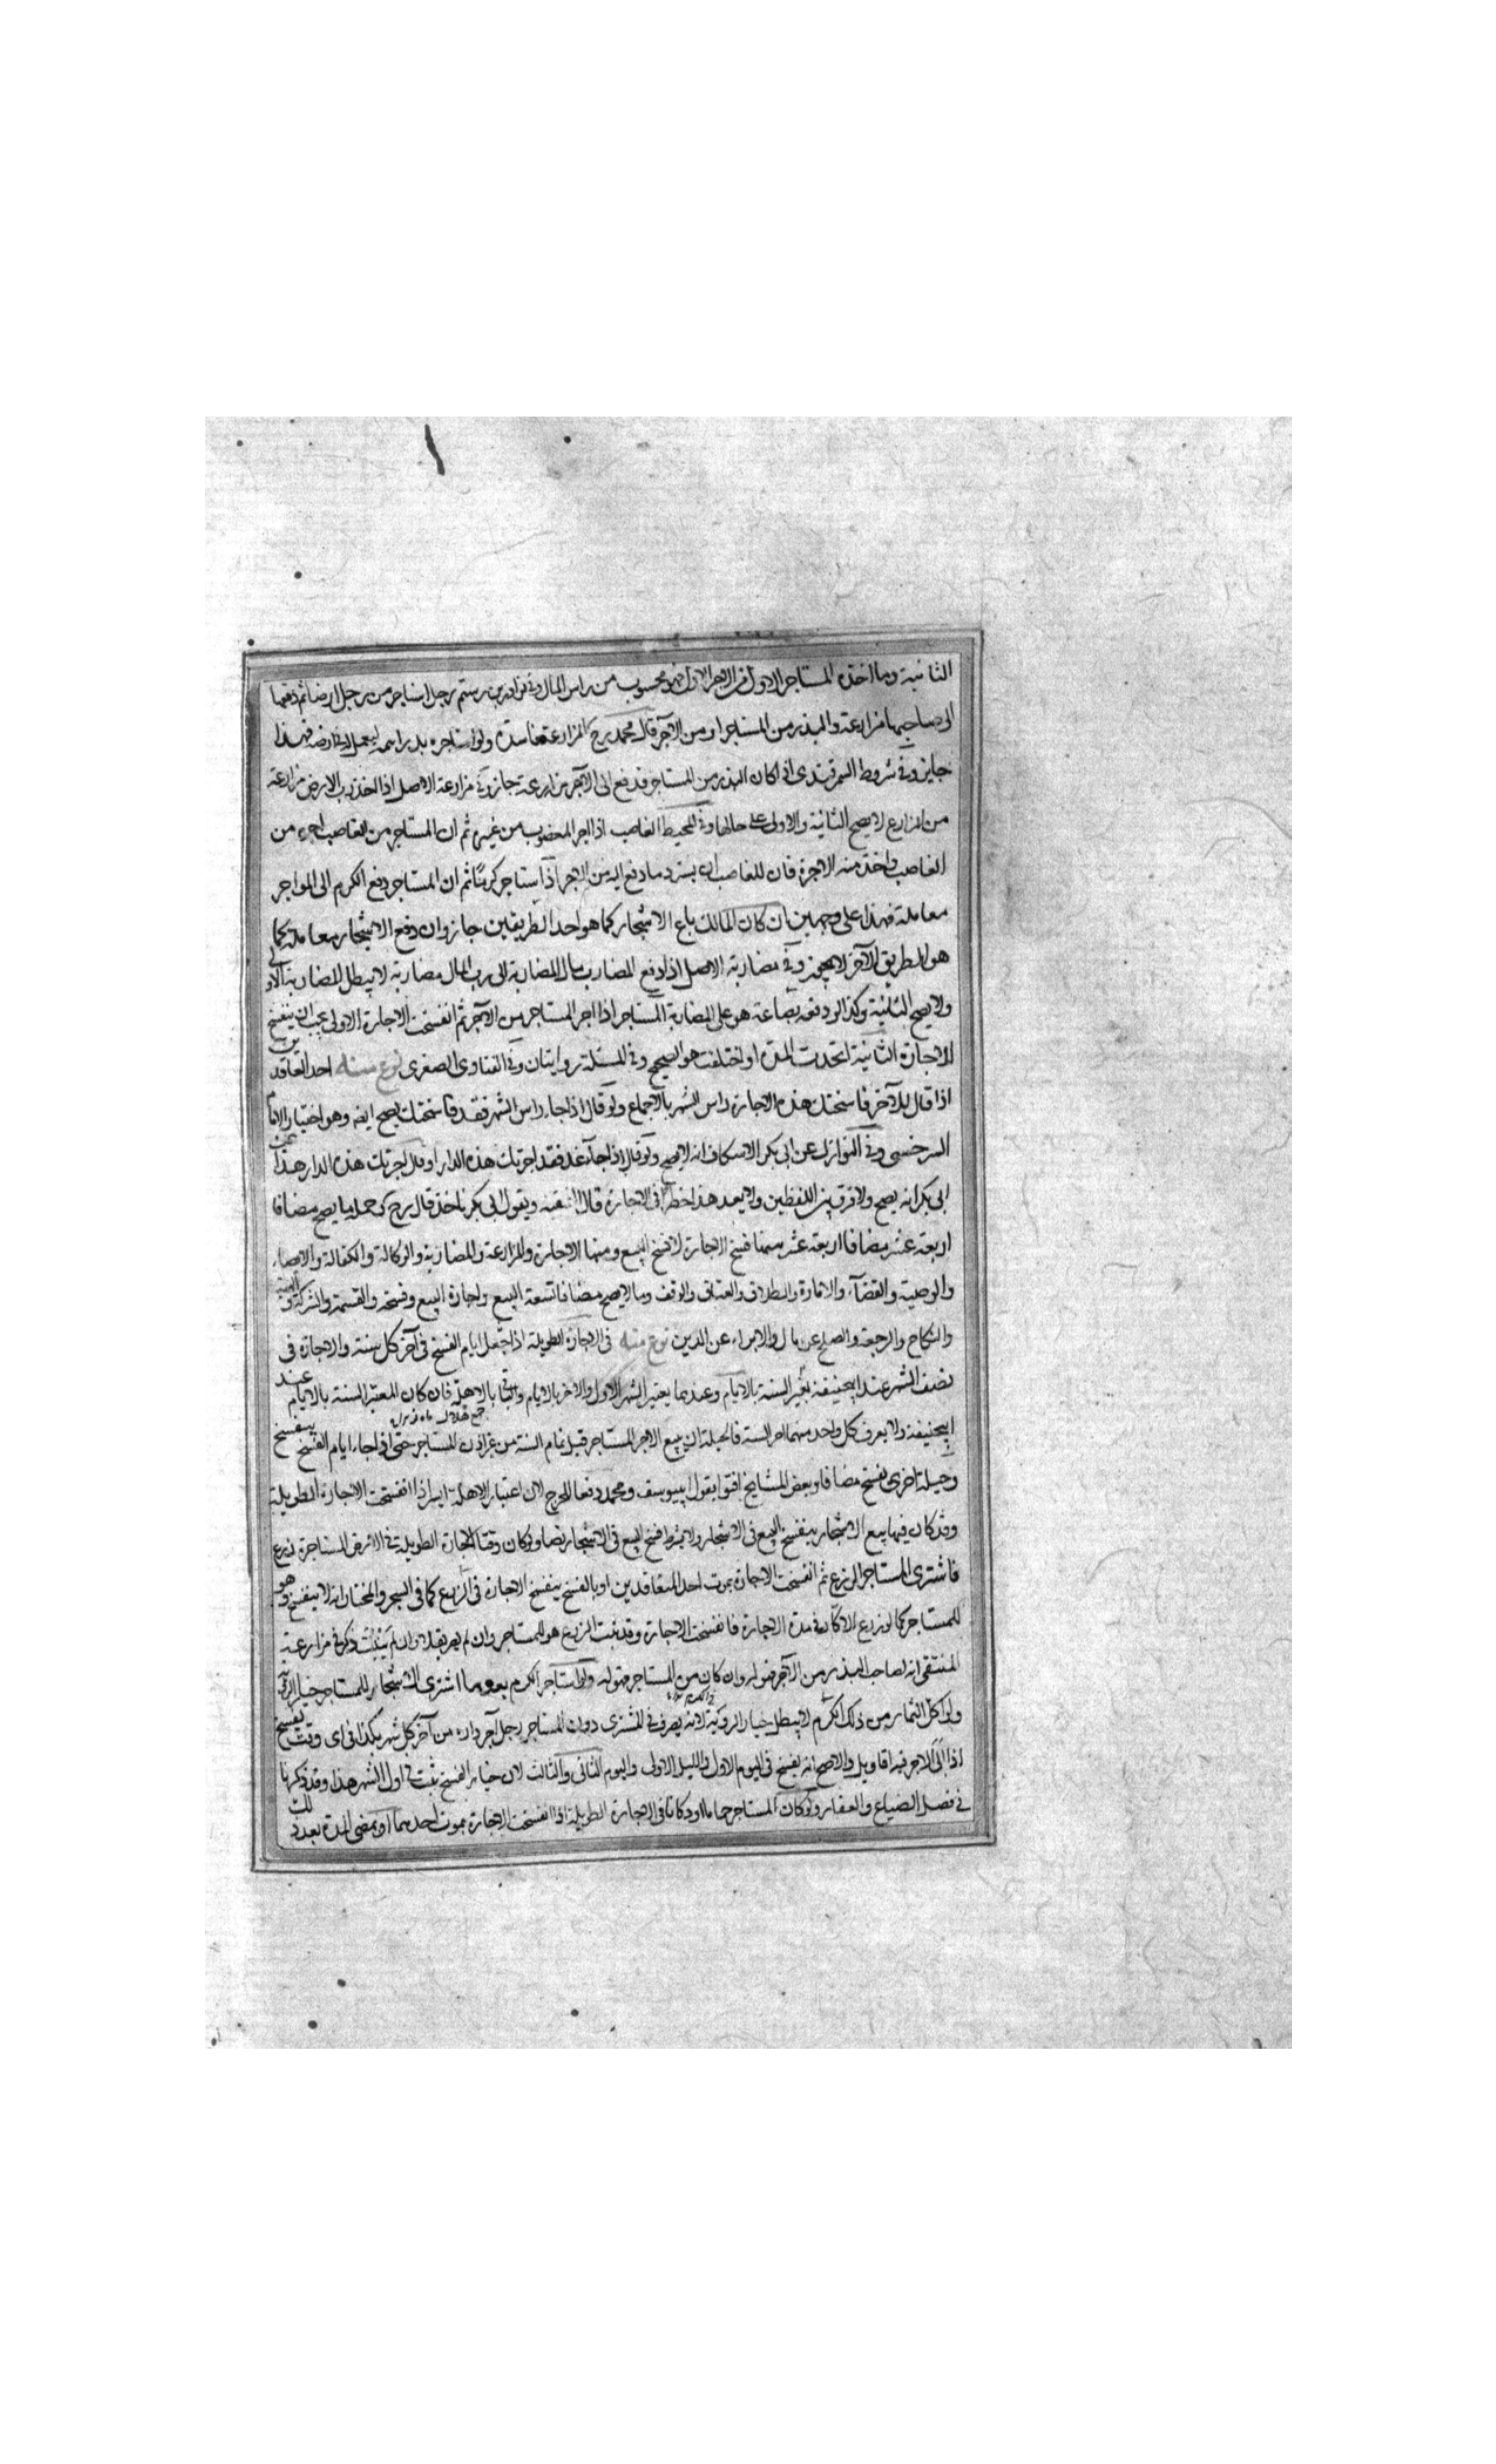 الثانية وما اخذه المستاجر الاول من الاجر الاول فهو محسوب من راس المال وفي نوادر بن رستم رجل استاجر من رجل ارضا ثم دفعها
الى صاحبها مزارعة والبذر من المستاجر او من الآجر قال محمد رح المزارعة فاسدة ولو استاجره بدراهم ليعمل في ارضه فهذا
جايز وفي شروط السمرقندي اذا كان البذر من المستاجر فدفع الى الآجر مزارعة جاز وفي مزارعة الاصل اذا اخذ رب الارض مزارعة
من المزارع لا يصح الثانية والاولى على حالها وفي المحيط الغاصب اذا اجر المغصوب من غيره ثم ان المستاجر من الغاصب اجره من
الغاصب واخذ منه الاجرة فان للغاصب ان يسترد ما دفع اليه من الاجر اذا استاجر كرمًا ثم ان المستاجر دفع الكرم الى المواجر
معاملة فهذا على وجهين ان كان المالك باع الاشجار كما هو احد الطريقين جاز وان دفع الاشجار معاملة كما
هو الطريق الآخر لا يجوز وفي مضاربة الاصل اذا دفع المضارب مال المضاربة الى رب المال مضاربة لا يبطل المضاربة الاولى
ولا يصح الثانية وكذا لو دفعه بضاعة هو على المضاربة المستاجر اذا اجر المستاجر من الآجر ثم انفسخت الاجارة الاولى يجب ان ينفسخ
الاجارة الثانية اتحدت المدة او اختلفت هو الصحيح وفي المسئلة روايتان وفي الفتاوى الصغرى نوع منه احد العاقدين
اذا قال للآخر فاسختك هذه الاجارة راس الشهر بالاجماع ولو قال اذا جاء راس الشهر فقد فاسختك يصح ايضا وهو اختيار الامام
السرخسي وفي النوازل عن ابي بكر الاسكاف انه لا يصح ولو قال اذا جاء غد فقد اجرتك هذه الدار او قال اجرتك هذه الدار هذا عن
ابي بكر انه يصح ولا فرق بين اللفظين ولا يعد هذا خطرا في الاجارة قال الفقيه وبقول ابي بكر ناخذ قال رح جملة ما يصح مضافا
اربعة عشر مضافا اربعة عشر منها فسخ الاجارة لا فسخ البيع ومنها الاجارة والمزارعة والمضاربة والوكالة والكفالة والايصاء
والوصية والقضاء والامارة والطلاق والعتاق والوقف وما لا يصح مضافا تسعة البيع واجازة البيع وفسخه والقسمة والشركة والهبة
والنكاح والرجعة والصلح عن مال والابراء عن الدين نوع منه في الاجارة الطويلة اذا جعل ايام الفسخ في آخر كل سنة والاجارة في
نصف الشهر عند ابيحنيفة يعتبر السنة بالايام وعندهما يعتبر الشهر الاول والاخر بالايام والباقي بالاهلة فان كان المعتبر السنة بالايام عند
ابيحنيفة ولا يعرف كل واحد منهما اخر السنة فالحيلة ان يبيع الآجر المستاجر قبل تمام السنة من غير اذن المستاجر حتى اذا جاء ايام الفسخ ينفسخ
وحيلة اخرى يفسخ مضافا وبعض المشايخ افتوا بقول ابييوسف ومحمد دفعا للحرج لان اعتبار الاهلة ايسر اذا انفسخت الاجارة الطويلة
وقد كان فيها بيع الاشجار ينفسخ البيع في الاشجار ولا يشترط فسخ البيع في الاشجار نصا ولو كان وقت الاجارة الطويلة في الارض المستاجرة زرع
فاشترى المستاجر الزرع ثم انفسخت الاجارة بموت احد المتعاقدين او بالفسخ ينفسخ الاجارة في الزرع كما في الشجر والمختار انه لا ينفسخ وهو
للمستاجر كما لو زرع الاكار في مدة الاجارة فانفسخت الاجارة وقد نبت الزرع هو للمستاجر وان لم يعد بقلا وان لم ينبت ذكر في مزارعة
المنتقى انه لصاحب البذر من الآجر فهو له وان كان من المستاجر فهو له ولو استاجر الكرم بعد ما اشترى الاشجار للمستاجر خيار الرؤية
ولو اكل الثمار من ذلك الكرم لا يبطل خيار الروية لانه تصرف في المشترى دون المستاجر رجل آجر داره من آخر كل شهر بكذا في اي وقت يفسخ
اذا ابى الآجر فيه اقاويل والاصح انه يفسخ في اليوم الاول والليل الاولى واليوم الثاني والثالث لان خيار الفسخ يثبت في اول الشهر هذا وقد ذكرنا
في فصل الضياع والعقار ولو كان المستاجر حماما او دكانا في الاجارة الطويلة اذا انفسخت الاجارة بموت احدهما او بمضى المدة بعد